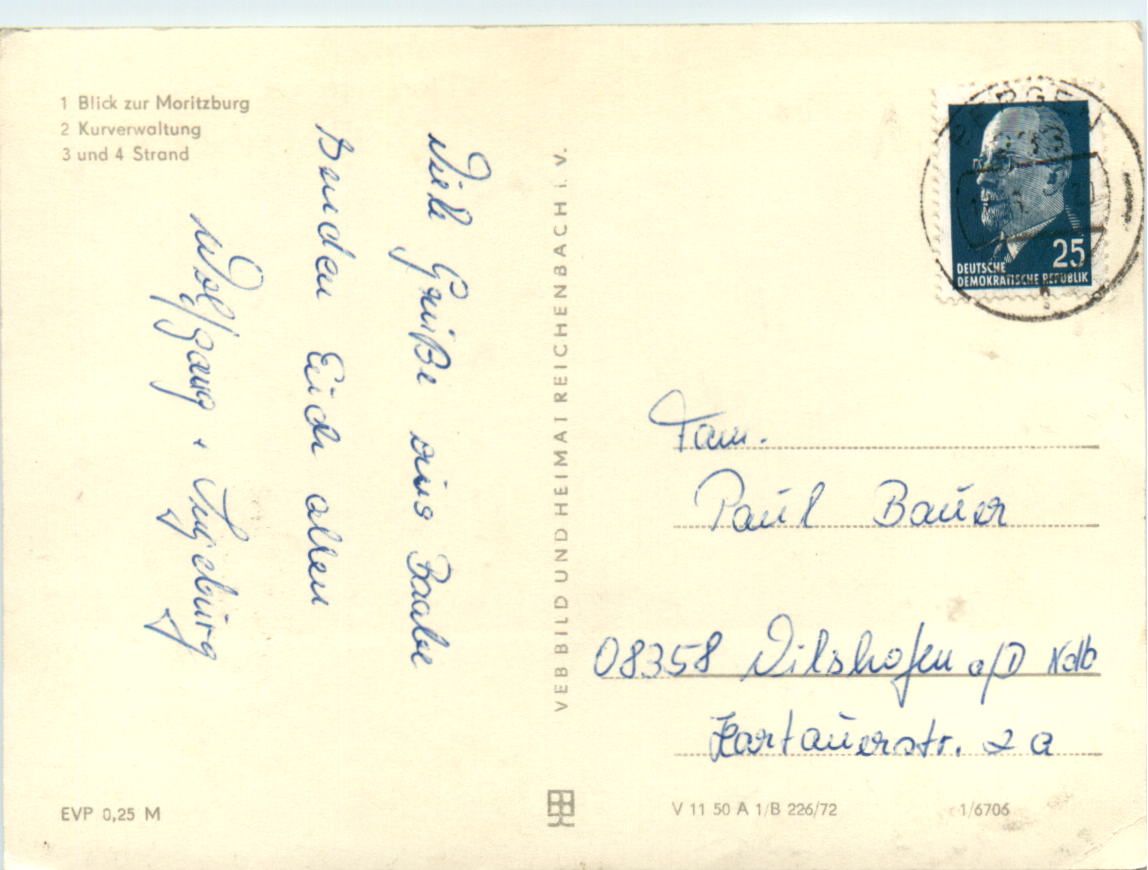 1 Blick zur Moritzburg
2 Kurverwaltung
3 und 4 Strand
Viele Grüße aus Baabe
senden Euch allen
Wolfgang + Ingeburg
VEB BILD UND HEIMAT REICHENBACH i. V.
BERGEN
25
DEUTSCHE
DEMOKRATISCHE REPUBLIK
Fam.
Paul Bauer
08358 Vilshofen a/D Ndb
Kartäuerstr. 2 a
EVP 0,25 M
V 11 50 A 1/B 226/72
1/6706